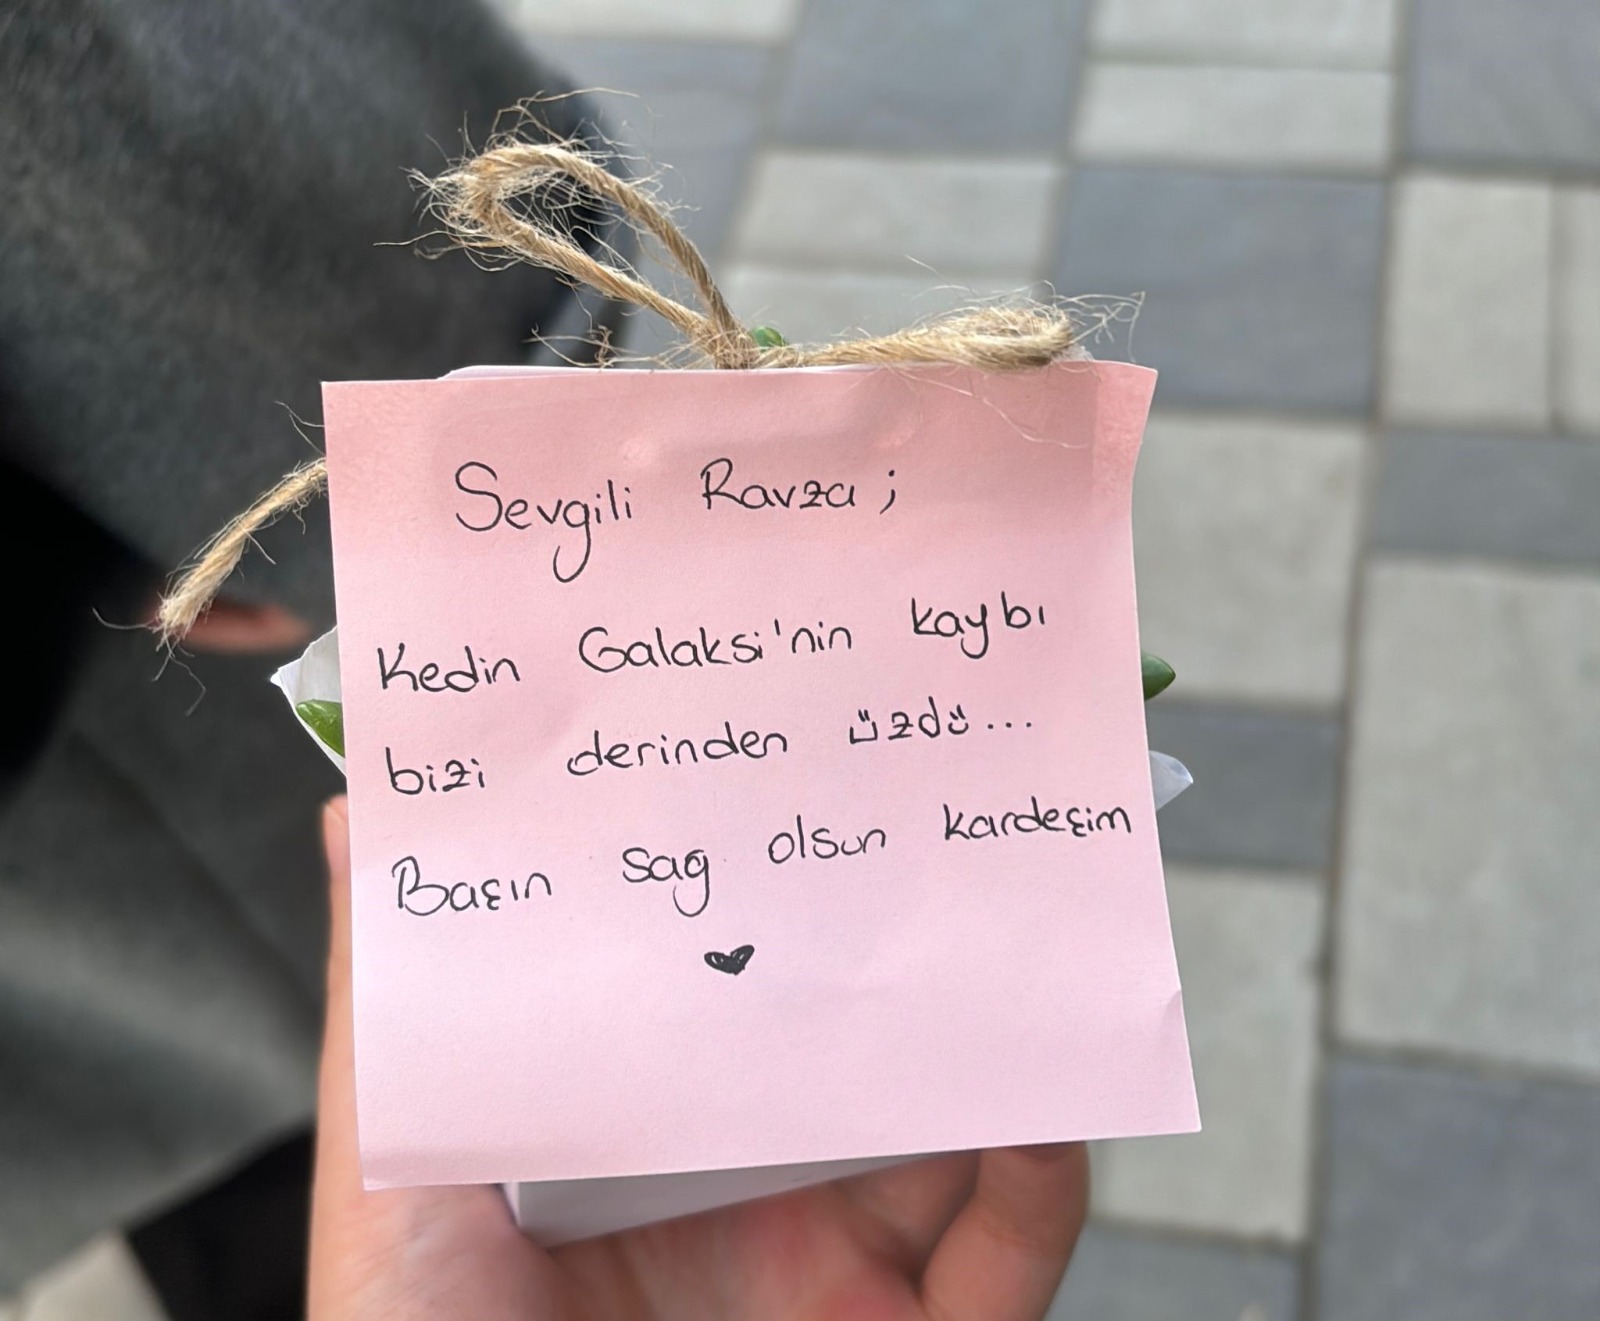 Sevgili Ravza;
Kedin Galaksi'nin kaybı
bizi derinden üzdü...
Başın sağ olsun kardeşim